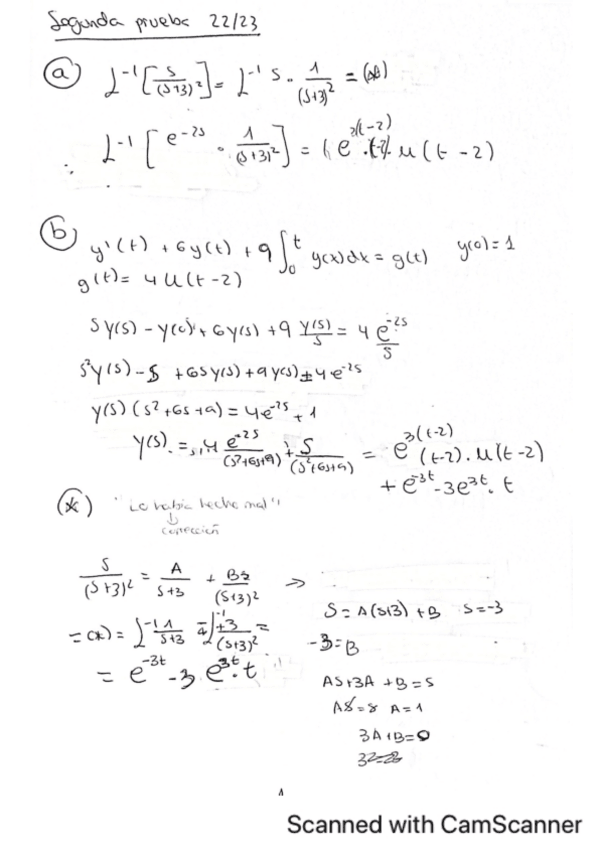 Segunda prueba 22/23
(a) L⁻¹[s/(s+3)²] = L⁻¹ s · 1/(s+3)² = (*)
L⁻¹[e⁻²ˢ · 1/(s+3)²] = e^3(t-2) · (t-2) · u(t-2)
(b) y'(t) + 6y(t) + 9 ∫₀ᵗ y(x)dx = g(t) y(0)=1
g(t) = 4u(t-2)
sy(s) - y(0) + 6y(s) + 9 y(s)/s = 4 e⁻²ˢ/s
s²y(s) - s + 6sy(s) + 9y(s) = 4e⁻²ˢ
y(s)(s²+6s+9) = 4e⁻²ˢ + 1
y(s) = 4 e⁻²ˢ/(s²+6s+9) + s/(s²+6s+9) = e^3(t-2) (t-2) · u(t-2)
+ e⁻³ᵗ - 3e³ᵗ · t
(*) "Lo había hecho mal"
↓
corrección
s/(s+3)² = A/(s+3) + B/(s+3)² →
s = A(s+3) + B s=-3
= (*) = L⁻¹ 1/(s+3) + L⁻¹ 3/(s+3)² =
-3=B
= e⁻³ᵗ - 3 e³ᵗ · t
As+3A+B=s
As=s A=1
3A+B=0
Scanned with CamScanner